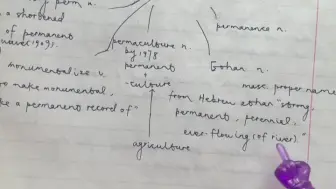 perm n.
a shortened
of permanent
wave (1909).
permanence n.
permaculture n.
by 1978
permanent
+
-culture
agriculture
monumentalize v.
to make monumental,
a permanent record of"
Ethan n.
masc. proper name
from Hebrew ethan "strong,
permanent, perennial,
ever-flowing (of river)."